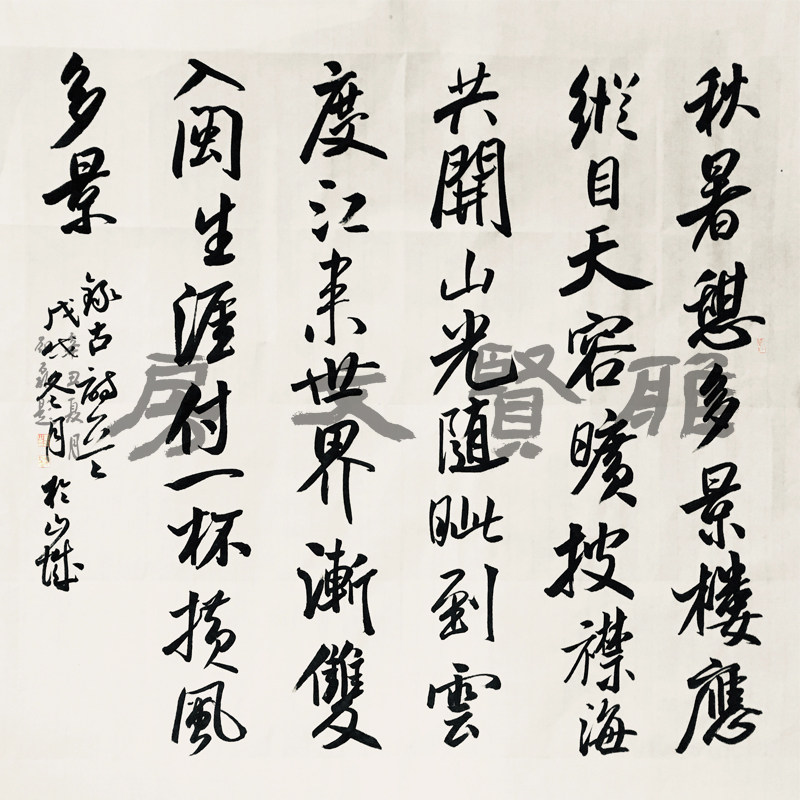 秋暑憩多景樓應
縱目天容曠披襟海
共開山光隨眦到雲
度江来世界漸雙
入閩生涯付一杯横風
多景
錄古詩
戊戌冬月於山城
雅賢文房